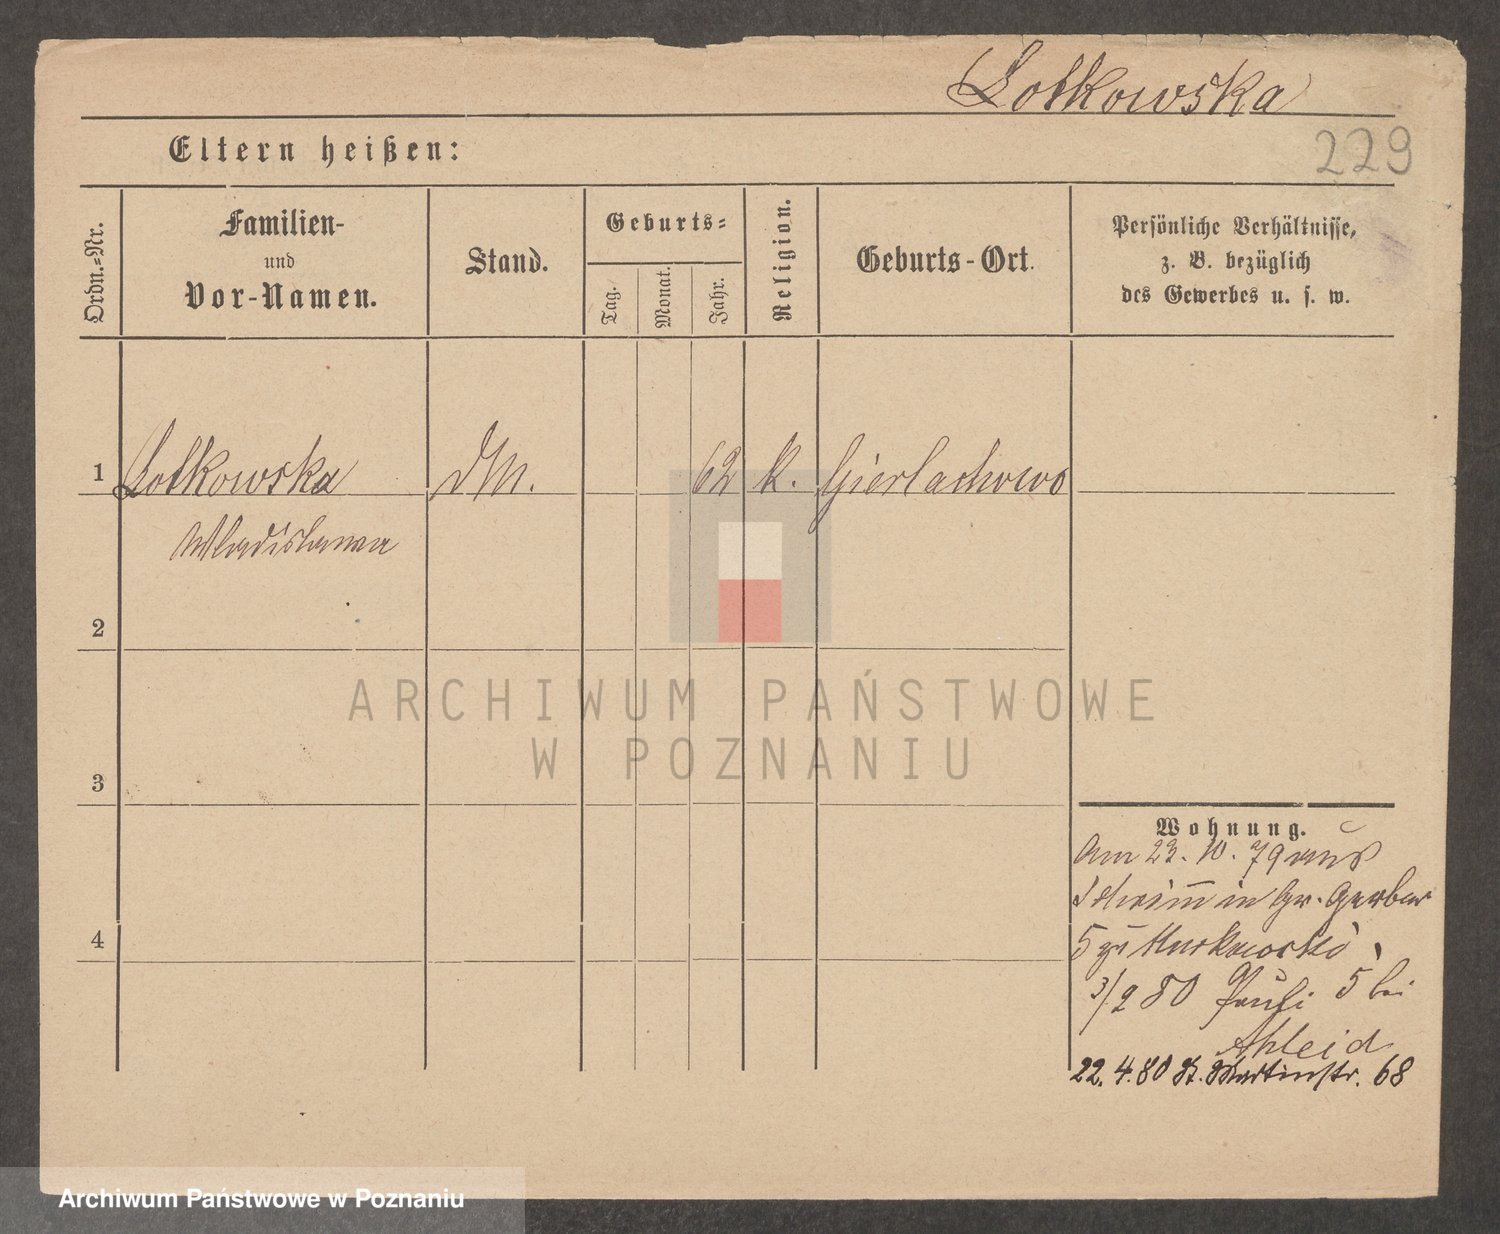 Lotkowska
229
Eltern heißen:
Ordn.-Nr.
Familien-
und
Vor-Namen.
Stand.
Geburts-
Tag.
Monat.
Jahr.
Religion.
Geburts-Ort.
Persönliche Verhältnisse,
z. B. bezüglich
des Gewerbes u. s. w.
1 Lotkowska DM. 62 k. Gierlachowo
Wladislawa
2
3
4
Wohnung.
Am 23. 10. 79 aus
Schrim̅ in Gr. Gerber
5 zu
3/2 80 Pauli 5 bei
Ahleid
22. 4. 80 St. Martinstr. 68
ARCHIWUM PAŃSTWOWE
W POZNANIU
Archiwum Państwowe w Poznaniu